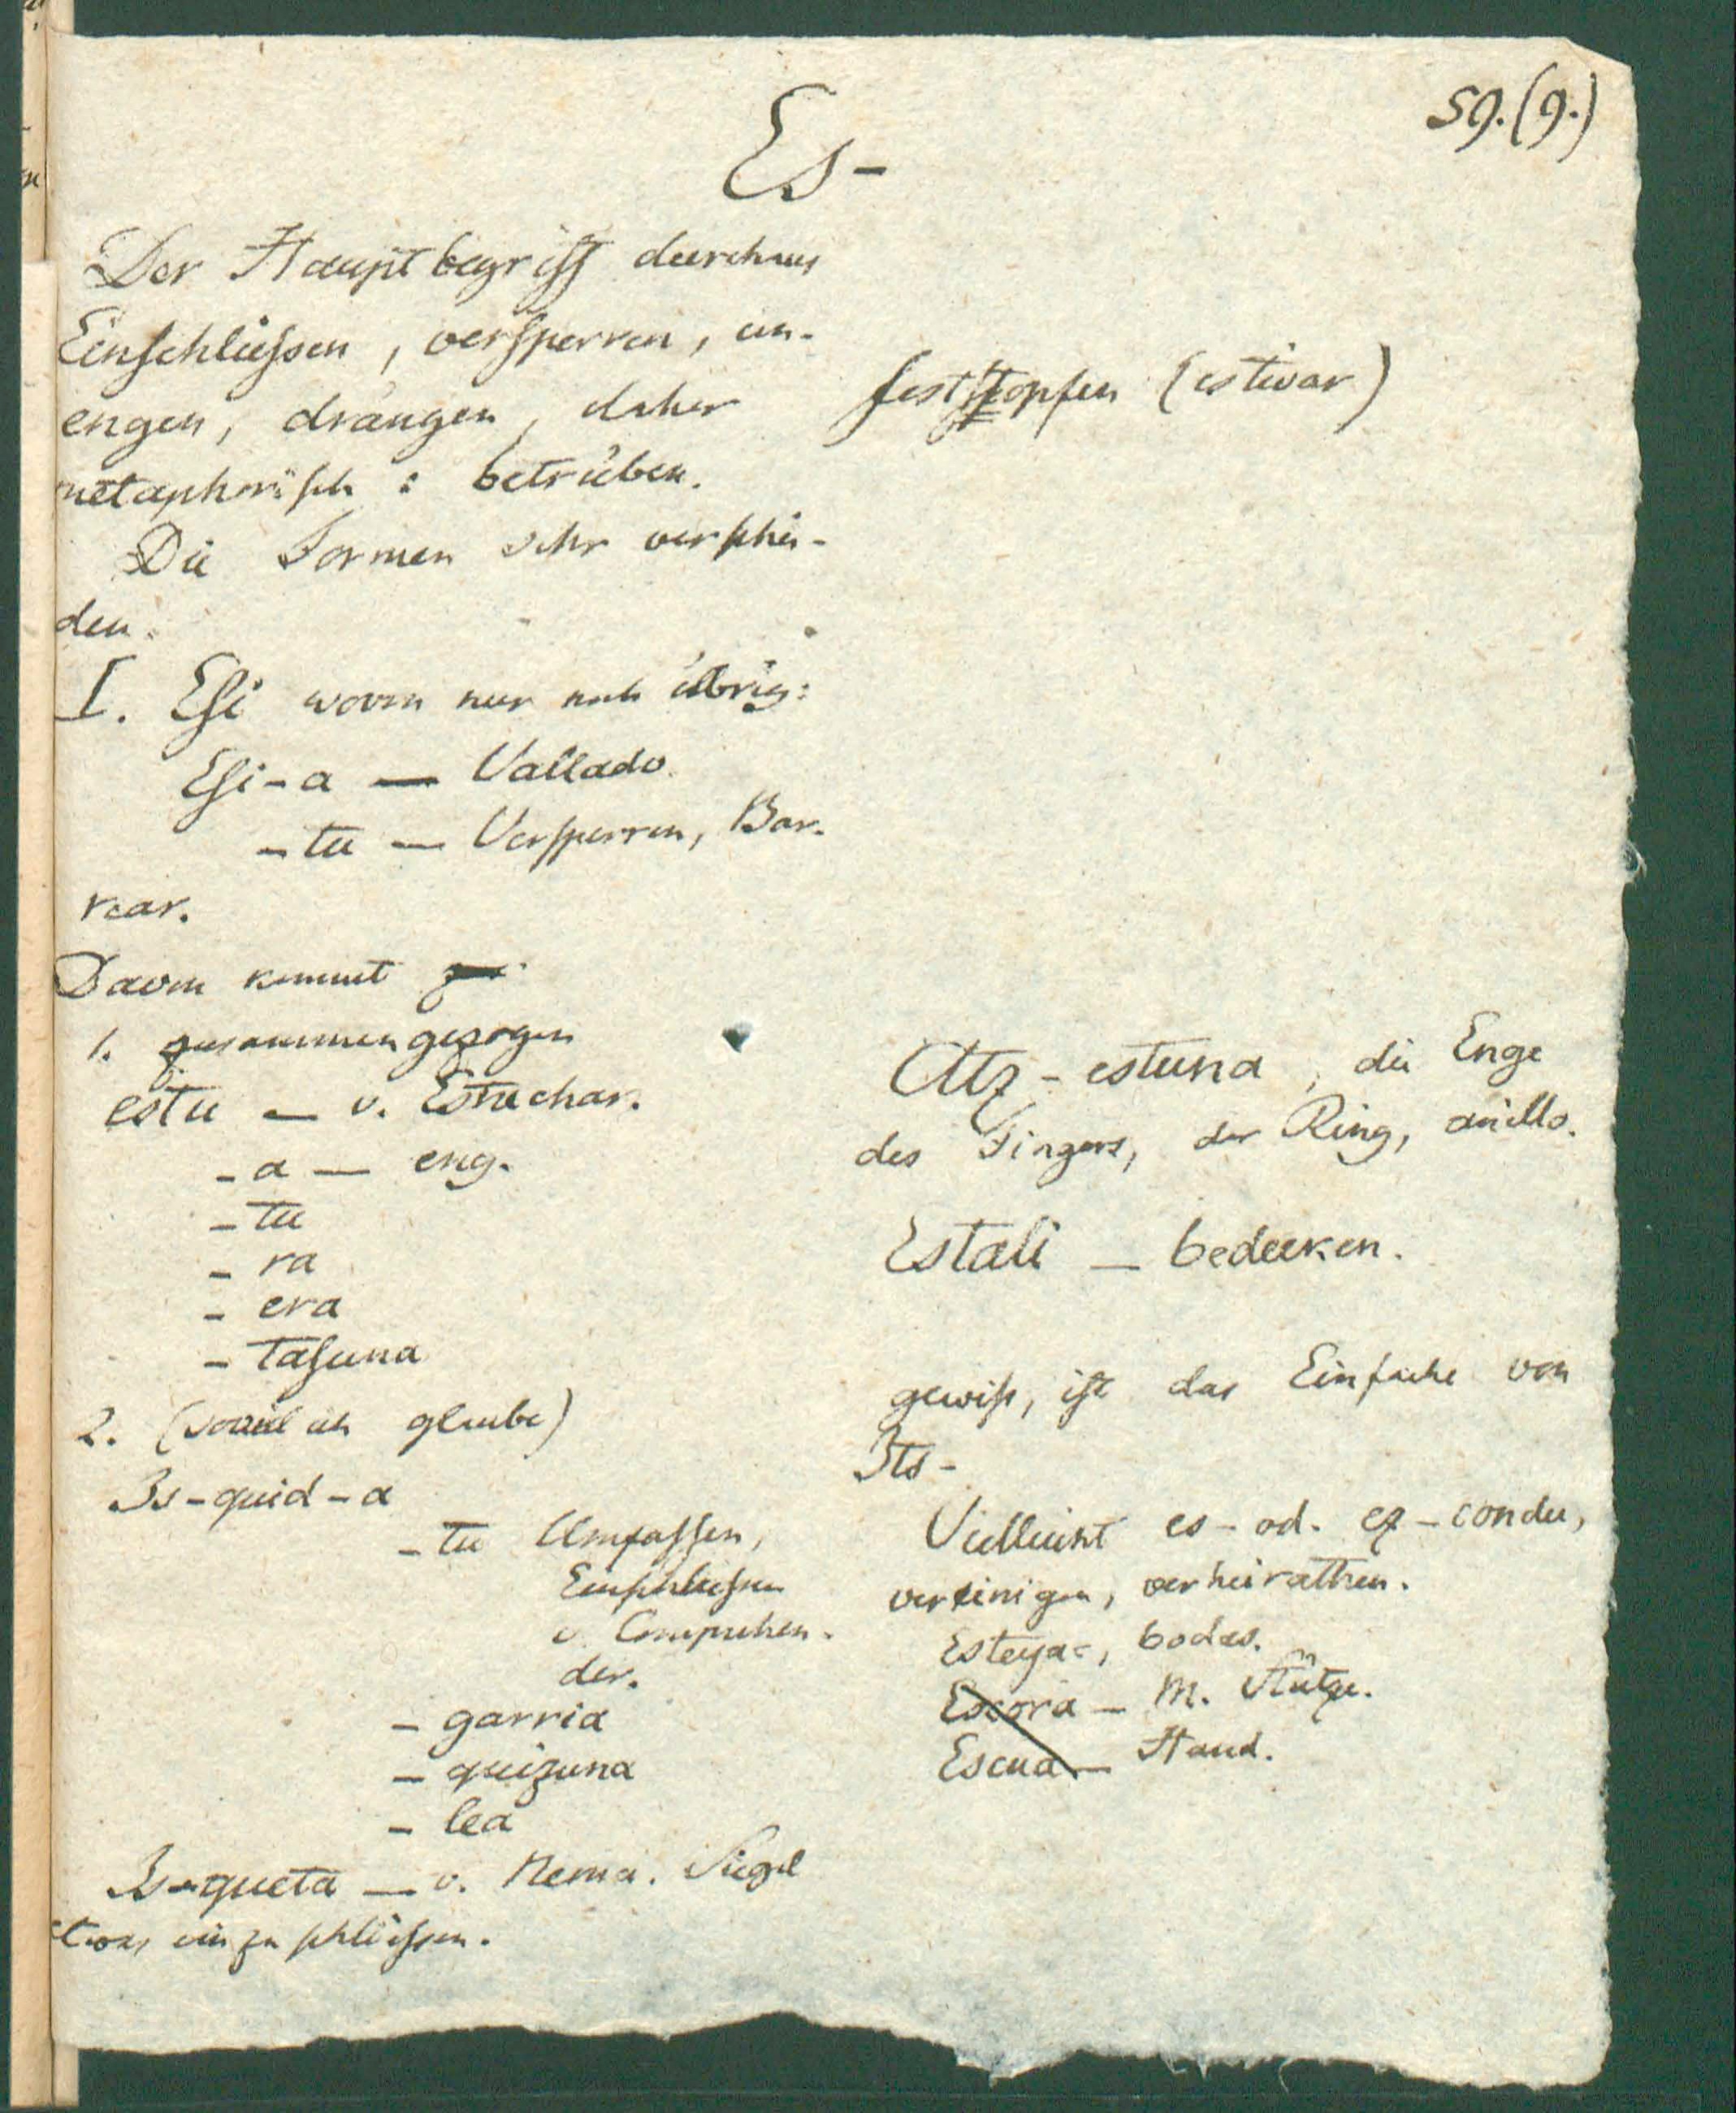 59.(9.)
Es-
Der Hauptbegriff durchaus
Einschliessen, versperren, ein-
engen, drängen, daher
metaphorisch: betrüben.
Die Formen sehr verschie-
den.
I. Esi wovon nur noch übrig:
Esi-a — Vallado
-tu — Versperren, Bar-
rear.
Davon kommt
1. zusammengezogen
estu — v. Estrechar.
-a — eng.
-tu
-ra
-era
-tasuna
2. (soviel ich glaube)
Is-quid-a
-tu Umfassen,
Einschliessen
v. Comprehen-
der.
-garria
-quizuna
-lea
Is-queta — v. Nema. Siegel
etwas einzuschliessen.
feststopfen (estivar)
Atz-estuna, die Enge
des Fingers, der Ring, anillo.
Estali — bedecken.
gewiss, ist das Einfache von
Its-
Vielleicht es- od. ez-condu,
vereinigen, verheirathen.
Esteya-, bodas.
Escora — M. Stütze.
Escua — Hand.